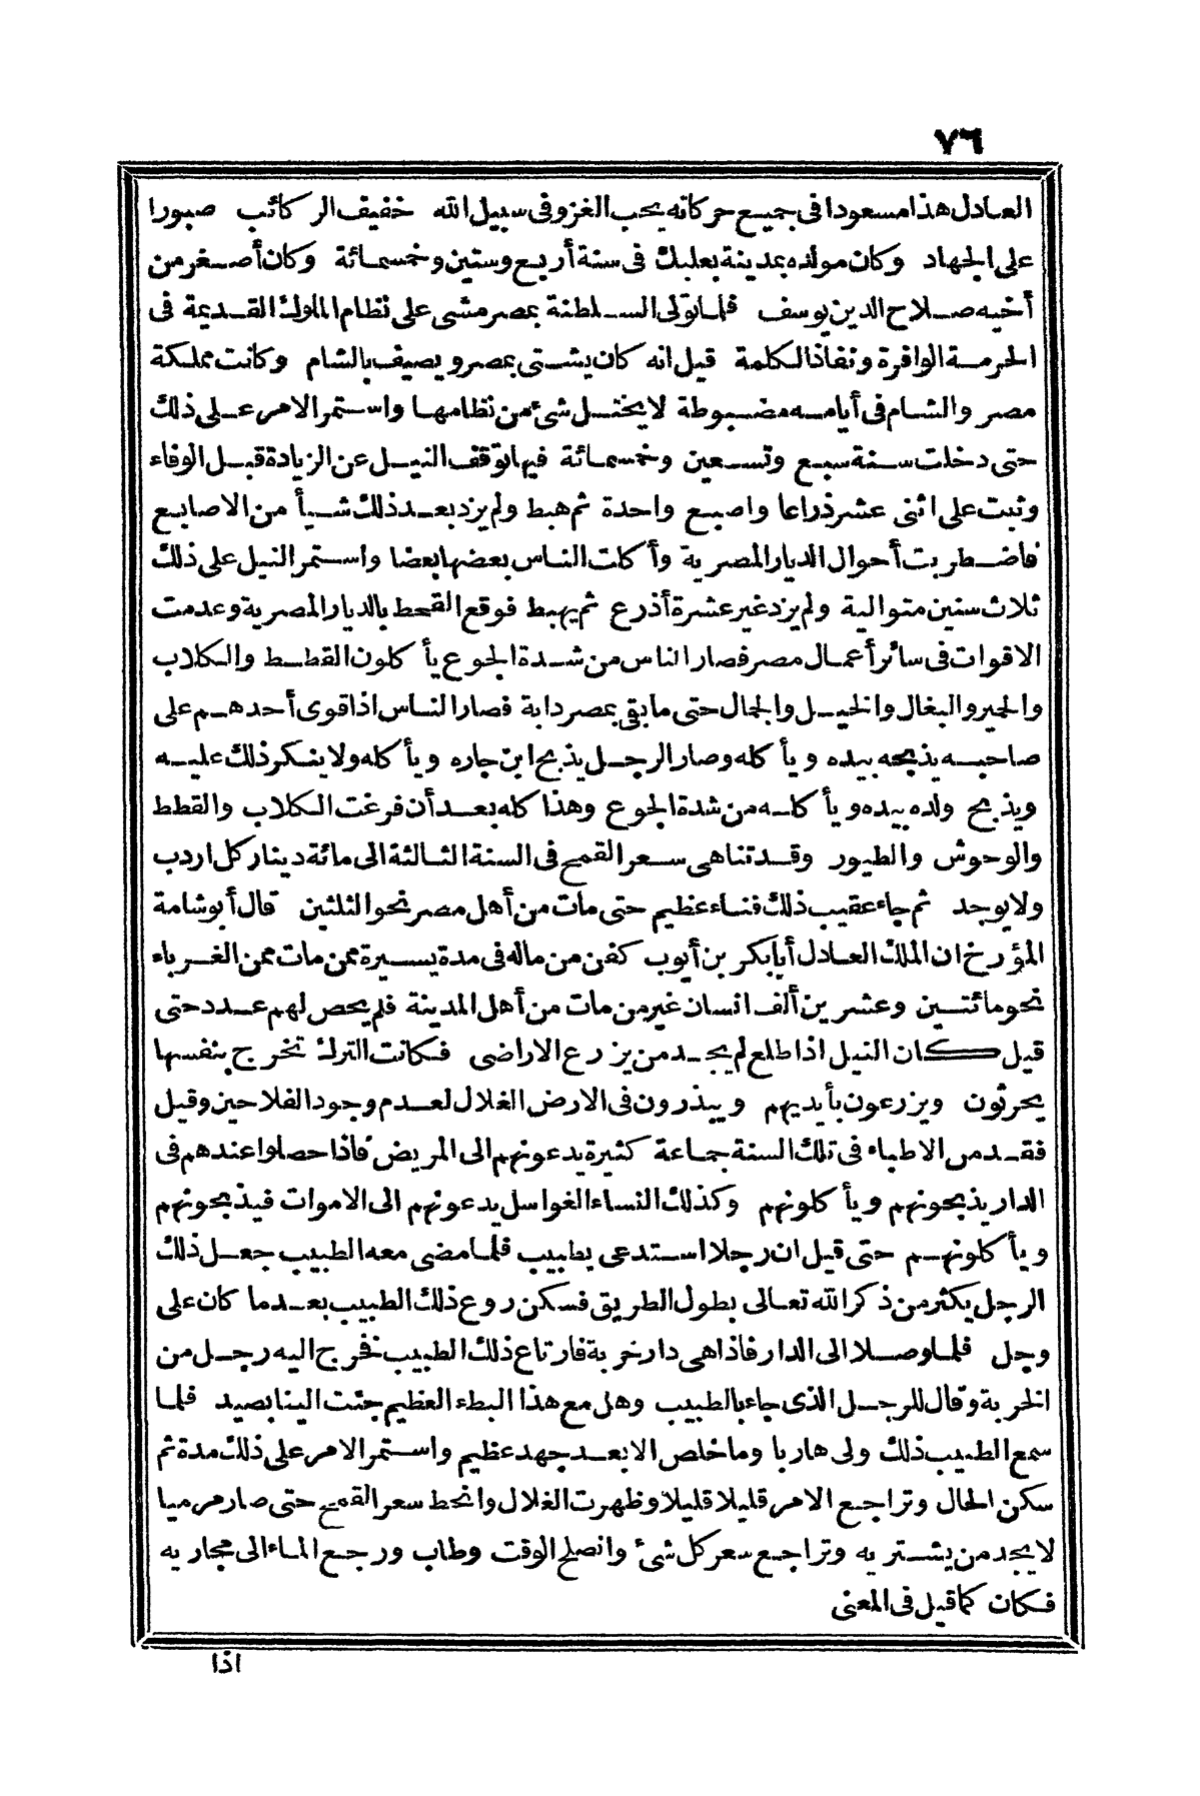 ٧٦
العادل هذا مسعودا فى جميع حركاته يحب الغزو فى سبيل الله خفيف الركائب صبورا
على الجهاد وكان مولده بمدينة بعلبك فى سنة أربع وستين وخمسمائة وكان أصغر من
أخيه صلاح الدين يوسف فلما تولى السلطنة بمصر مشى على نظام الملوك القديمة فى
الحرمة الوافرة ونفاذ الكلمة قيل انه كان يشتى بمصر ويصيف بالشام وكانت مملكة
مصر والشام فى أيامه مضبوطة لا يختل شئ من نظامها واستمر الامر على ذلك
حتى دخلت سنة سبع وتسعين وخمسمائة فيها توقف النيل عن الزيادة قبل الوفاء
وثبت على اثنى عشر ذراعا واصبع واحدة ثم هبط ولم يزد بعد ذلك شيأ من الاصابع
فاضطربت أحوال الديار المصرية وأكلت الناس بعضها بعضا واستمر النيل على ذلك
ثلاث سنين متوالية ولم يزد غير عشرة أذرع ثم يهبط فوقع القحط بالديار المصرية وعدمت
الاقوات فى سائر أعمال مصر فصار الناس من شدة الجوع يأكلون القطط والكلاب
والحمير والبغال والخيل والجمال حتى ما بقى بمصر دابة فصار الناس اذا قوى أحدهم على
صاحبه يذبحه بيده ويأكله وصار الرجل يذبح ابن جاره ويأكله ولا ينكر ذلك عليه
ويذبح ولده بيده ويأكله من شدة الجوع وهذا كله بعد أن فرغت الكلاب والقطط
والوحوش والطيور وقد تناهى سعر القمح فى السنة الثالثة الى مائة دينار كل اردب
ولا يوجد ثم جاء عقيب ذلك فناء عظيم حتى مات من أهل مصر نحو الثلثين قال أبو شامة
المؤرخ ان الملك العادل أبا بكر بن أيوب كفن من ماله فى مدة يسيرة ممن مات من الغرباء
نحو مائتين وعشرين ألف انسان غير من مات من أهل المدينة فلم يحص لهم عدد حتى
قيل كان النيل اذا طلع لم يجد من يزرع الاراضى فكانت الترك تخرج بنفسها
يحرثون ويزرعون بأيديهم ويبذرون فى الارض الغلال لعدم وجود الفلاحين وقيل
فقد من الاطباء فى تلك السنة جماعة كثيرة يدعونهم الى المريض فاذا حصلوا عندهم فى
الدار يذبحونهم ويأكلونهم وكذلك النساء الغواسل يدعونهم الى الاموات فيذبحونهم
ويأكلونهم حتى قيل ان رجلا استدعى بطبيب فلما مضى معه الطبيب جعل ذلك
الرجل يكثر من ذكر الله تعالى بطول الطريق فسكن روع ذلك الطبيب بعدما كان على
وجل فلما وصلا الى الدار فاذا هى دار خربة فارتاع ذلك الطبيب فخرج اليه رجل من
الخربة وقال للرجل الذى جاء بالطبيب وهل مع هذا البطء العظيم جئت الينا بصيد فلما
سمع الطبيب ذلك ولى هاربا وما خلص الا بعد جهد عظيم واستمر الامر على ذلك مدة ثم
سكن الحال وتراجع الامر قليلا قليلا وظهرت الغلال وانحط سعر القمح حتى صار مرميا
لا يجد من يشتريه وتراجع سعر كل شئ وانصلح الوقت وطاب ورجع الماء الى مجاريه
فكان كما قيل فى المعنى
اذا